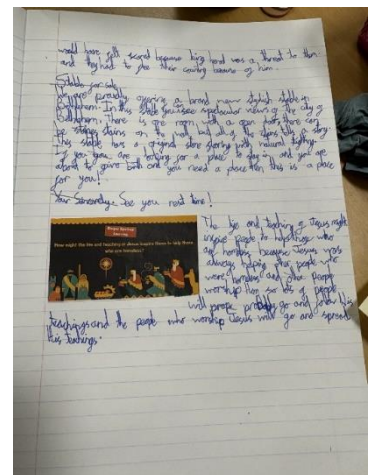 would have felt scared because king herod was a threat to them
and they had to flee their country because of him.
Stable for sale
I'm proudly offering a brand new stylish stable in
Bethlehem. In this stable you see spectacular views of the city of
Bethlehem. There is one room with an open door, there can
be strange stains on the wall but all of the stains tells a story.
This stable has a ground store flooring with natural lighting.
If you guys are looking for a place to stay and you are
about to give birth and you need a place then this is a place
for you!
Your Sincerely: See you next time!
How might the life and teaching of Jesus inspire them to help those
who are homeless?
The life and teaching of Jesus might
inspire people to help those who
are homeless because Jesus was
always helping other people who
were homeless and other people
worship him so lots of people
will probably go and follow his
teachings and the people who worship Jesus will go and spread
his teachings.